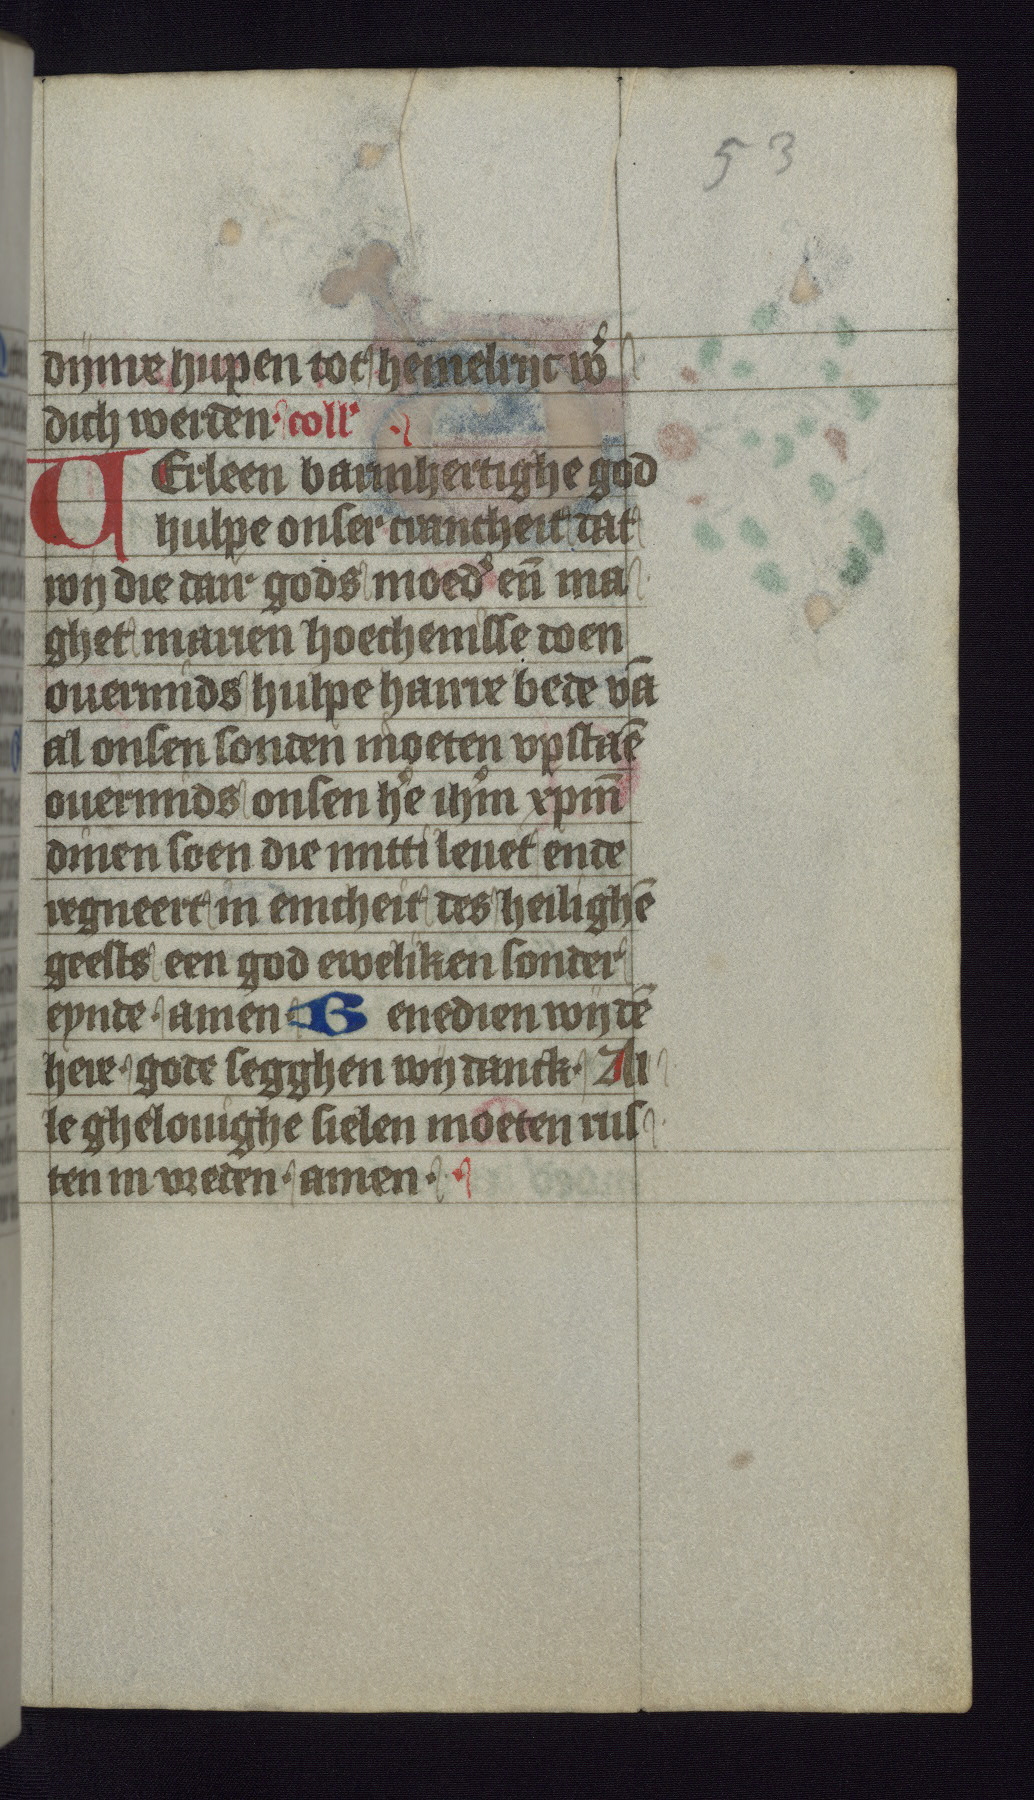 53
dijnre hupen tot hemelrijc wͤ
dich werden · coll'
VErleen barmhertighe god
hulpe onser cranckheit dat
wij die dair gods moedͬ eñ ma
ghet marien hoechenisse doen
ouermids hulpe hairre bede vā
al onsen sonden moeten vpstaē
ouermids onsen hͤe ihm xpm̄
dinen soen die mitti leuet ende
regneert in eincheit des heilighē
geests een god eweliken sonder
eynde · amen · Benedien wij dē
here · gode segghen wij danck · Al
le ghelouighe sielen moeten rus
ten in vreden · amen ·